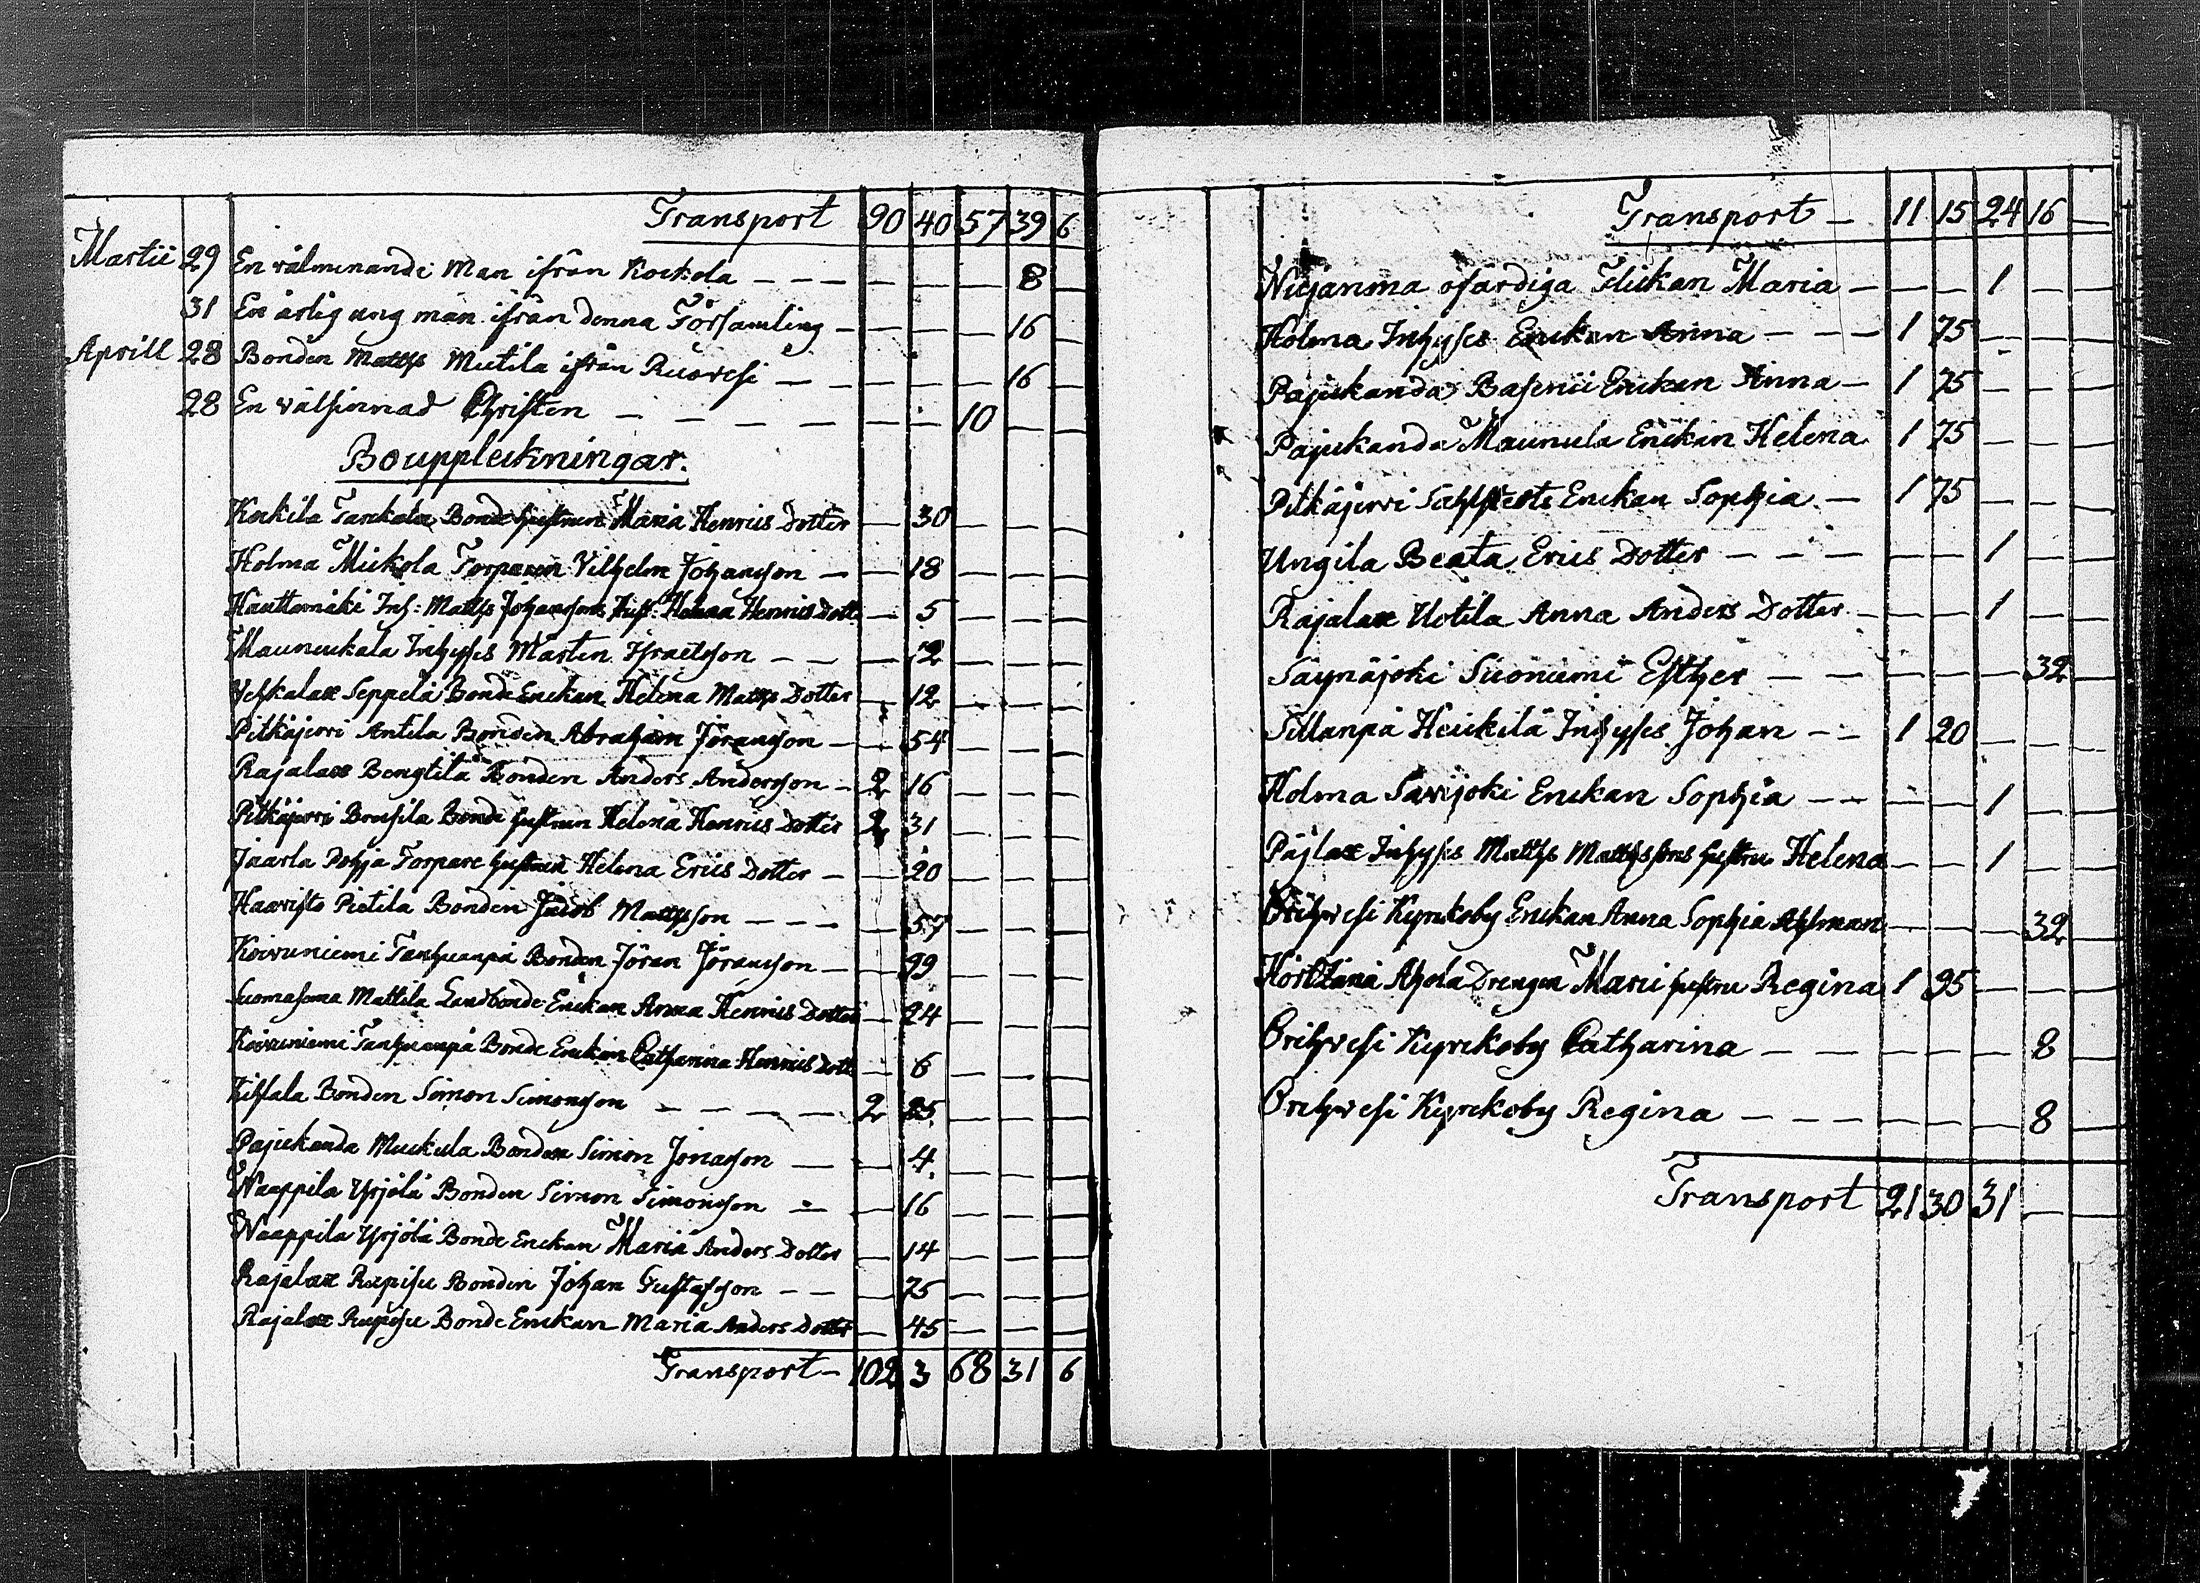 Transport 90 40 57 39 6
Martii 29 En välmenande Man ifrån Kockola — — — — — — 8 —
31 En ärlig ung man ifrån denna Församling — — — — 16 —
Aprill 28 Bonden Matts Mutila ifrån Ruovesi — — — — — 16 —
28 En välsinnad Christen — — — — — — 10 — —
Bouppteckningar.
Kockila Tarckala Bonde hustrun Maria Henrics Dotter — 30 — — —
Holma Mickola Torparen Vilhelm Johansson — — 18 — — —
Hauttamäki Inh: Matts Johanssons Hust: Helena Henrics Dott — 5 — — —
Maunuckala Inhyses Mårten Israelsson — — — 12 — — —
Vehkalax Seppelä Bonde Enckan Helena Matts Dotter — 12 — — —
Pitkäjervi Antila Bonden Abraham Göransson — — 54 — — —
Rajalax Bengtilä Bonden Anders Andersson — 2 16 — — —
Pitkäjervi Brusila Bonde hustrun Helena Henrics Dotter 2 31 — — —
Jaarla Pohja Torpare hustrun Helena Erics Dotter — — 20 — — —
Haavisto Pietila Bonden Jacob Mattsson — — — — 57 — — —
Koivuniemi Tanhuanpä Bonden Jöran Jöransson — — 99 — — —
Suomasema Mattila Landbonde Enckan Anna Henrics Dotter — 24 — — —
Koivuniemi Tanhuanpä Bonde Enckan Catharina Henrics Dott — 6 — — —
Bonden Simon Simonsson — — — — 2 25 — — —
Pajukanda Muckula Bonden Simon Jonasson — — 4 — — —
Naappila Yrjölä Bonden Simon Simonsson — — 16 — — —
Naappila Yrjölä Bonde Enckan Maria Anders Dotter — 14 — — —
Rajalax Rupisu Bonden Johan Gustafsson — — — 75 — — —
Rajalax Rupisu Bonde Enckan Maria Anders Dotter — 45 — — —
Transport — 102 3 68 31 6
Transport — 11 15 24 16 —
ofärdiga Flickan Maria — — — 1 — —
Holma Inhyses Enckan Anna — — — 1 75 — — —
Pajukanda Baserii Enckan Anna — 1 75 — — —
Pajukanda Maunula Enckan Helena 1 75 — — —
Pitkäjervi Enckan Sophia — 1 75 — — —
Ungila Beata Erics Dotter — — — — — 1 — —
Rajalax Uotila Anna Anders Dotter — — — 1 — —
Säynäjoki Suoniemi Esther — — — — — 32 —
Sillanpä Heickilä Inhyses Johan — — 1 20 — — —
Holma Savijoki Enckan Sophia — — — — 1 — —
Päjlax Inhyses Matts Mattssons hustru Helena — — 1 — —
Orihvesi Kyrckoby Enckan Anna Sophia Ahlman — — — 32 —
Ahola Drengen Marii hustru Regina 1 95 — — —
Orihvesi Kyrckoby Catharina — — — — — 8 —
Orihvesi Kyrckoby Regina — — — — — — 8 —
Transport 21 30 31 — —